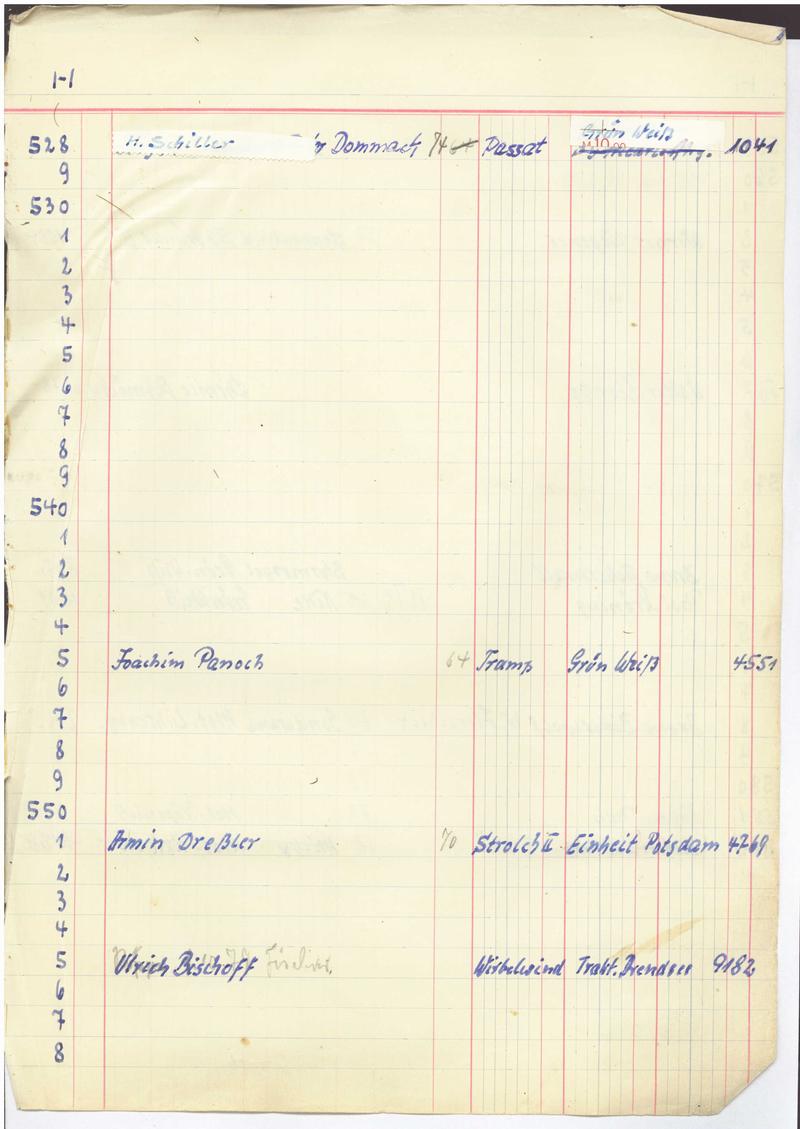 H
528 H. Schiller Dommach 74 Passat Grün Weiß 1041
9
530
1
2
3
4
5
6
7
8
9
540
1
2
3
4
5 Joachim Panoch 64 Tramp Grün Weiß 4551
6
7
8
9
550
1 Armin Dreßler 70 Strolch II Einheit Potsdam 4769
2
3
4
5 Ulrich Bischoff Wirbelwind Trakt. Arendsee 9182
6
7
8